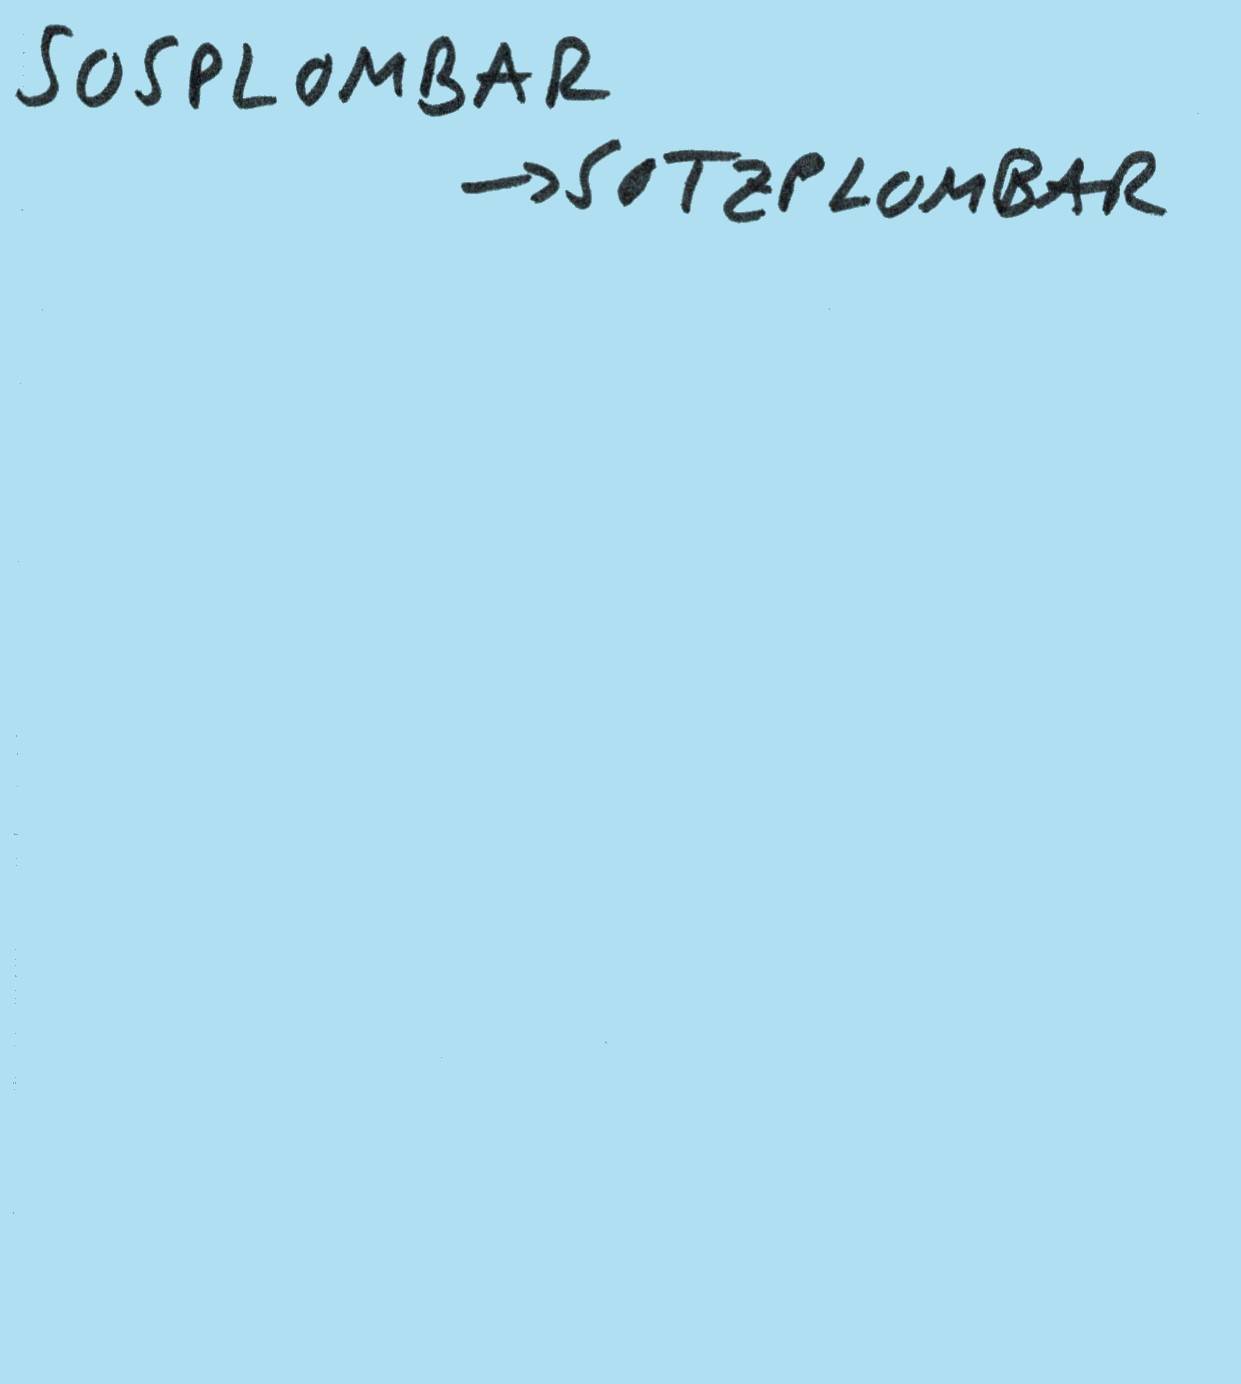 SOSPLOMBAR
→SOTZPLOMBAR